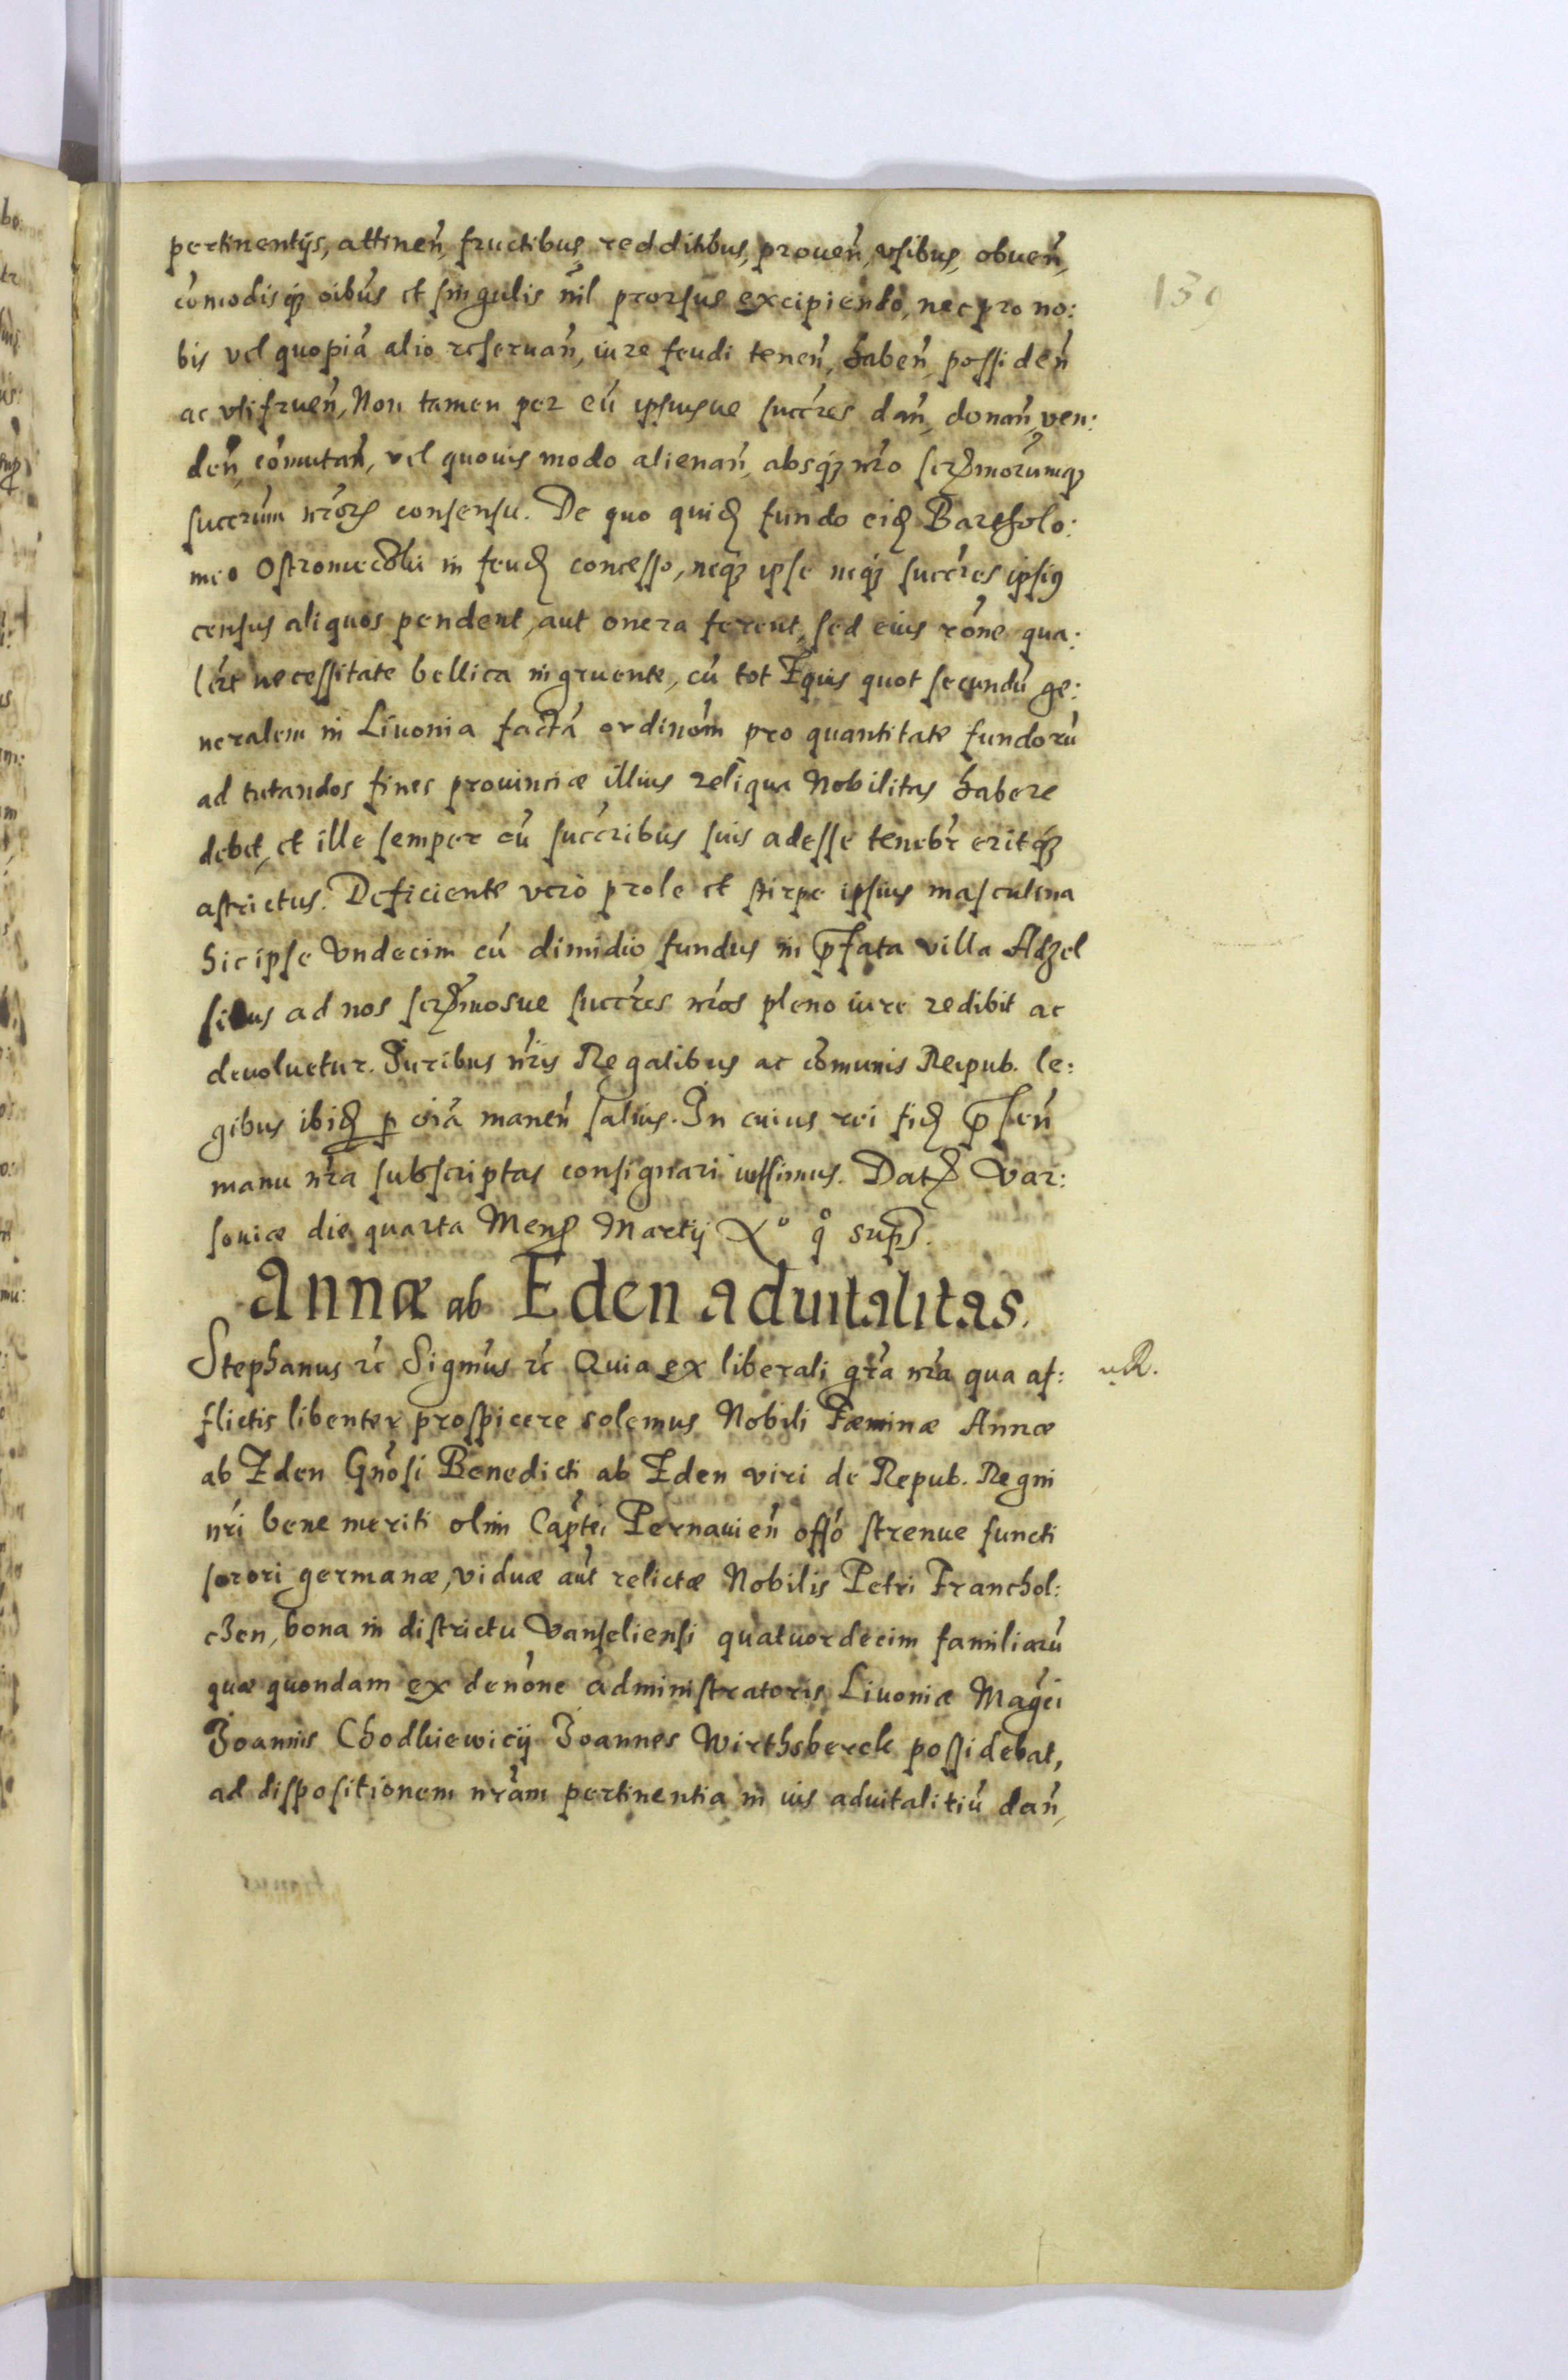 139
pertinentijs, attineń, fructibus, redditibus, proueń, vsibus, obueń,
cōmodisq́₃ oībus et singulis nīl prorsus excipiendo, nec pro no:
bis vel quopiā alio reseruań, iure feudi teneń, habeń, possideń
ac vtifrueń, Non tamen per eū ipsiusue succ̄res dań, donań, ven:
deń, cōmutań, vel quouis modo alienań, absq́₃ nr̄o ser̄morumq₃
succrūm nr̄orꝝ consensu. De quo quiđ fundo eiđ Bartholo:
meo Ostromecƺki in feuđ concesso, neq́₃ ipse neq́₃ succ̄res ipsiꝯ
census aliquos pendent, aut onera ferent, sed eius rōne qua:
lr̄e necessitate bellica ingruente, cū tot Equis quot secundū ge:
neralem in Liuonia factā ordinōm pro quantitate fundorū
ad tutandos fines prouinciæ illius reliqua Nobilitas habere
debet, et ille semper cū succribus suis adesse teneb̄r eritq́₃
astrictus. Deficiente verò prole et stirpe ipsius masculina
hic ipse vndecim cū dimidio fundus in p̄fata villa Adzel
situs ad nos ser̄mosue succ̄res nr̄os pleno iure redibit ac
deuoluetur. Iuribus nr̄is Regalibus ac cōmunis Reipub. le:
gibus ibiđ ꝑ oīa maneń saluis. In cuius rei fiđ p̄seń
manu nr̄a subscriptas consignari iussimus. Datꝭ Var:
souiæ die quarta Mensꝭ Martij Xº q̊ supꝭ.
Annæ ab Eden aduitalitas.
Stephanus rc̄ Sigm̄us rc̄ Quia ex liberali gr̄a nr̄a qua af:
uR.
flictis libenter prospicere solemus Nobili Fæminæ Annæ
ab Eden Gnōsi Benedicti ab Eden viri de Repub. Regni
nr̄i bene meriti olim Capt̄ei Pernauień offō strenue functi
sorori germanæ, viduæ aūt relictæ Nobilis Petri Franchol:
cƺen, bona in districtu Vanseliensi quatuordecim familiarū
quæ quondam ex denōne administratoris Liuoniæ Magc̄i
Ioannis Chodkiewicij Ioannes Wirthsberck possidebat,
ad dispositionem nr̄am pertinentia in ius aduitalitiū dań,